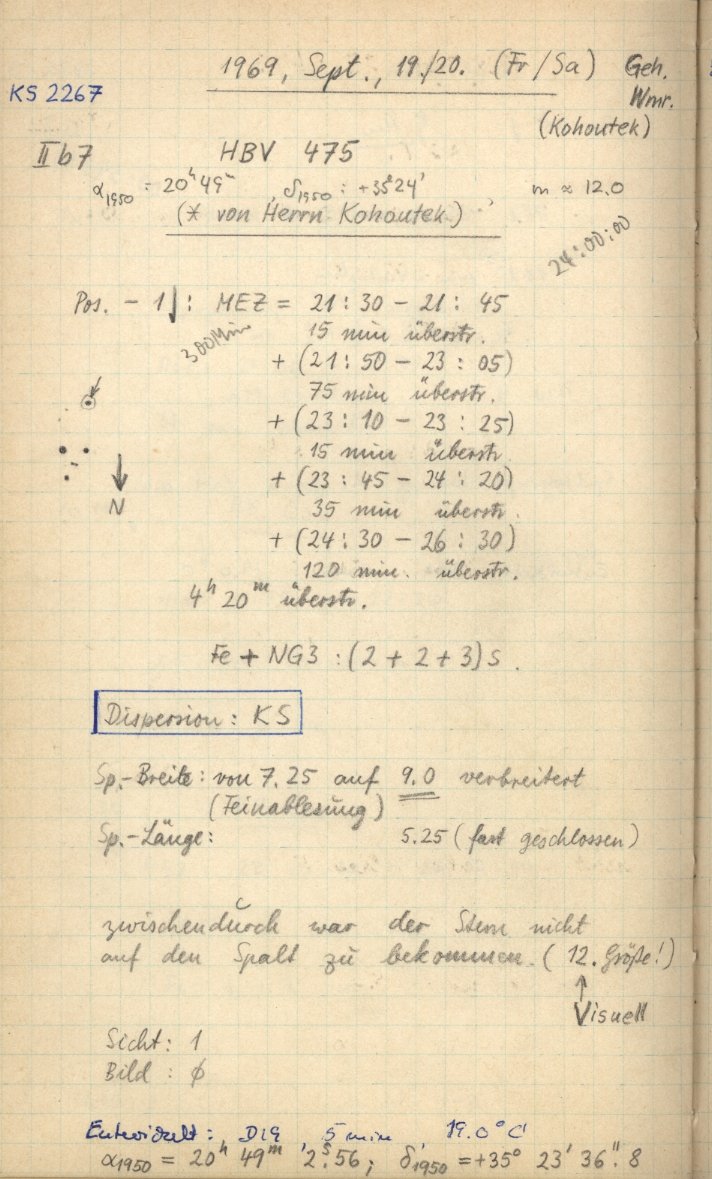 1969, Sept., 19./20. (Fr/Sa) Geh.
KS 2267 Wmr.
(Kohoutek)
II b7 HBV 475
α1950 = 20h 49m, δ1950 : +35°24', m ≈ 12.0
(* von Herrn Kohoutek)
24:00:00
Pos. - 1↓: MEZ = 21 : 30 - 21 : 45
300 Min 15 min überstr.
+ (21 : 50 - 23 : 05)
75 min überstr.
+ (23 : 10 - 23 : 25)
15 min überstr.
+ (23 : 45 - 24 : 20)
N 35 min überstr.
+ (24 : 30 - 26 : 30)
120 min. überstr.
4h 20m überstr.
Fe + NG3 : (2 + 2 + 3) s.
Dispersion: KS
Sp.-Breite: von 7.25 auf 9.0 verbreitert
(Feinablesung)
Sp.-Länge: 5.25 (fast geschlossen)
zwischendurch war der Stern nicht
auf den Spalt zu bekommen. (12. Größe!)
↑
Visuell
Sicht: 1
Bild : ϕ
Entwickelt: D19 5 min 19.0°C
α1950 = 20h 49m 2s.56; δ1950 = +35° 23' 36".8